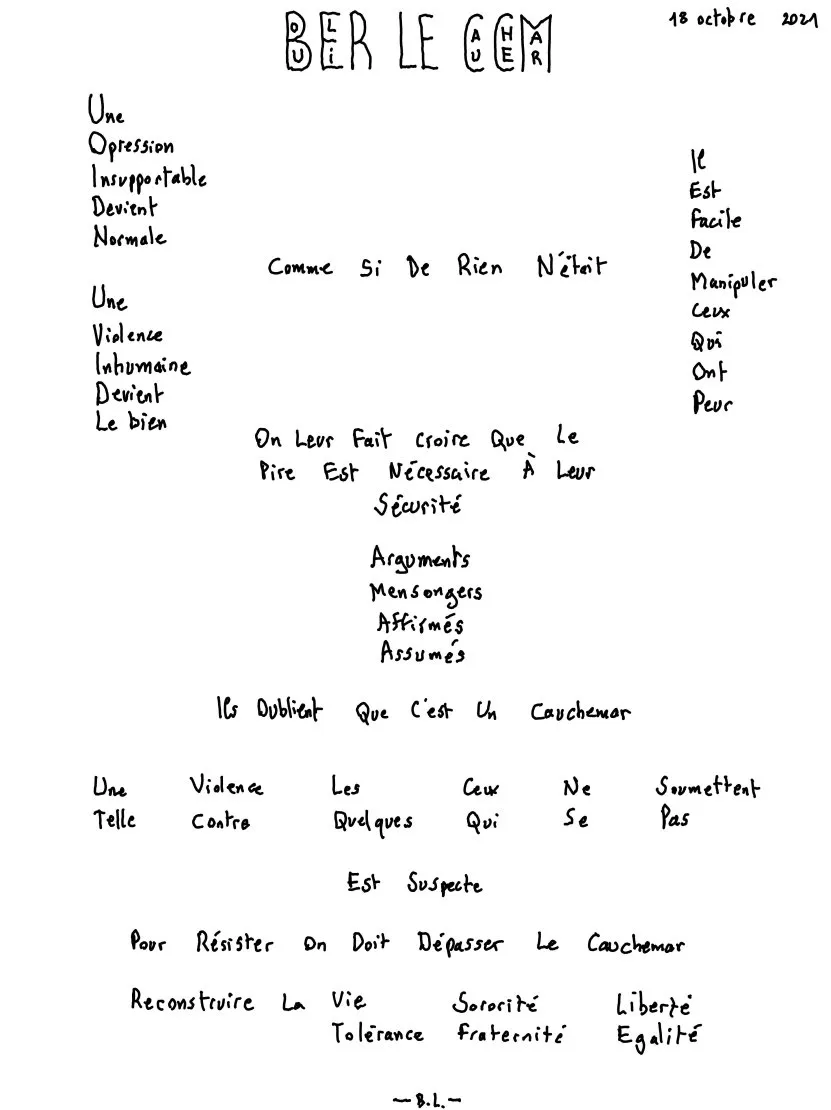 OUBLIER LE CAUCHEMAR
18 octobre 2021
Une
Opression
Insupportable
Devient
Normale
Une
Violence
Inhumaine
Devient
Le bien
Comme Si De Rien N'était
Il
Est
Facile
De
Manipuler
Ceux
Qui
Ont
Peur
On Leur Fait Croire Que Le
Pire Est Nécessaire À Leur
Sécurité
Arguments
Mensongers
Affirmés
Assumés
Ils Oublient Que C'est Un Cauchemar
Une Violence Les Ceux Ne Soumettent
Telle Contre Quelques Qui Se Pas
Est Suspecte
Pour Résister On Doit Dépasser Le Cauchemar
Reconstruire La Vie Sororité Liberté
Tolérance Fraternité Egalité
— B.L. —